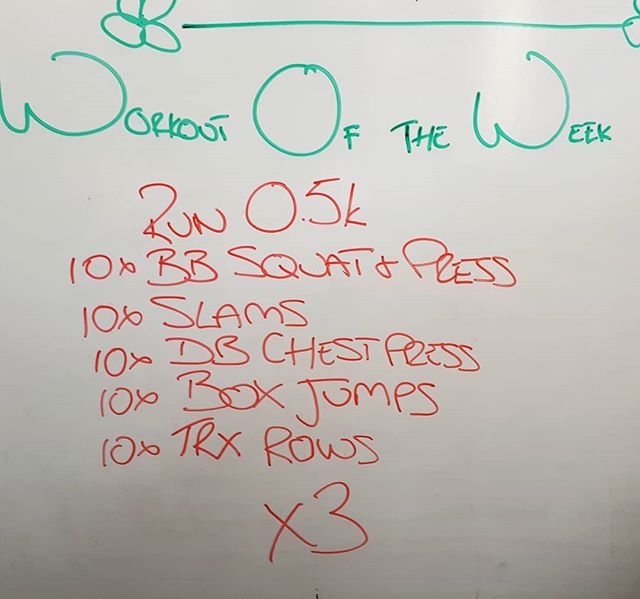 WORKOUT OF THE WEEK
RUN 0.5k
10x BB SQUAT & PRESS
10x SLAMS
10x DB CHEST PRESS
10x BOX JUMPS
10x TRX ROWS
x3